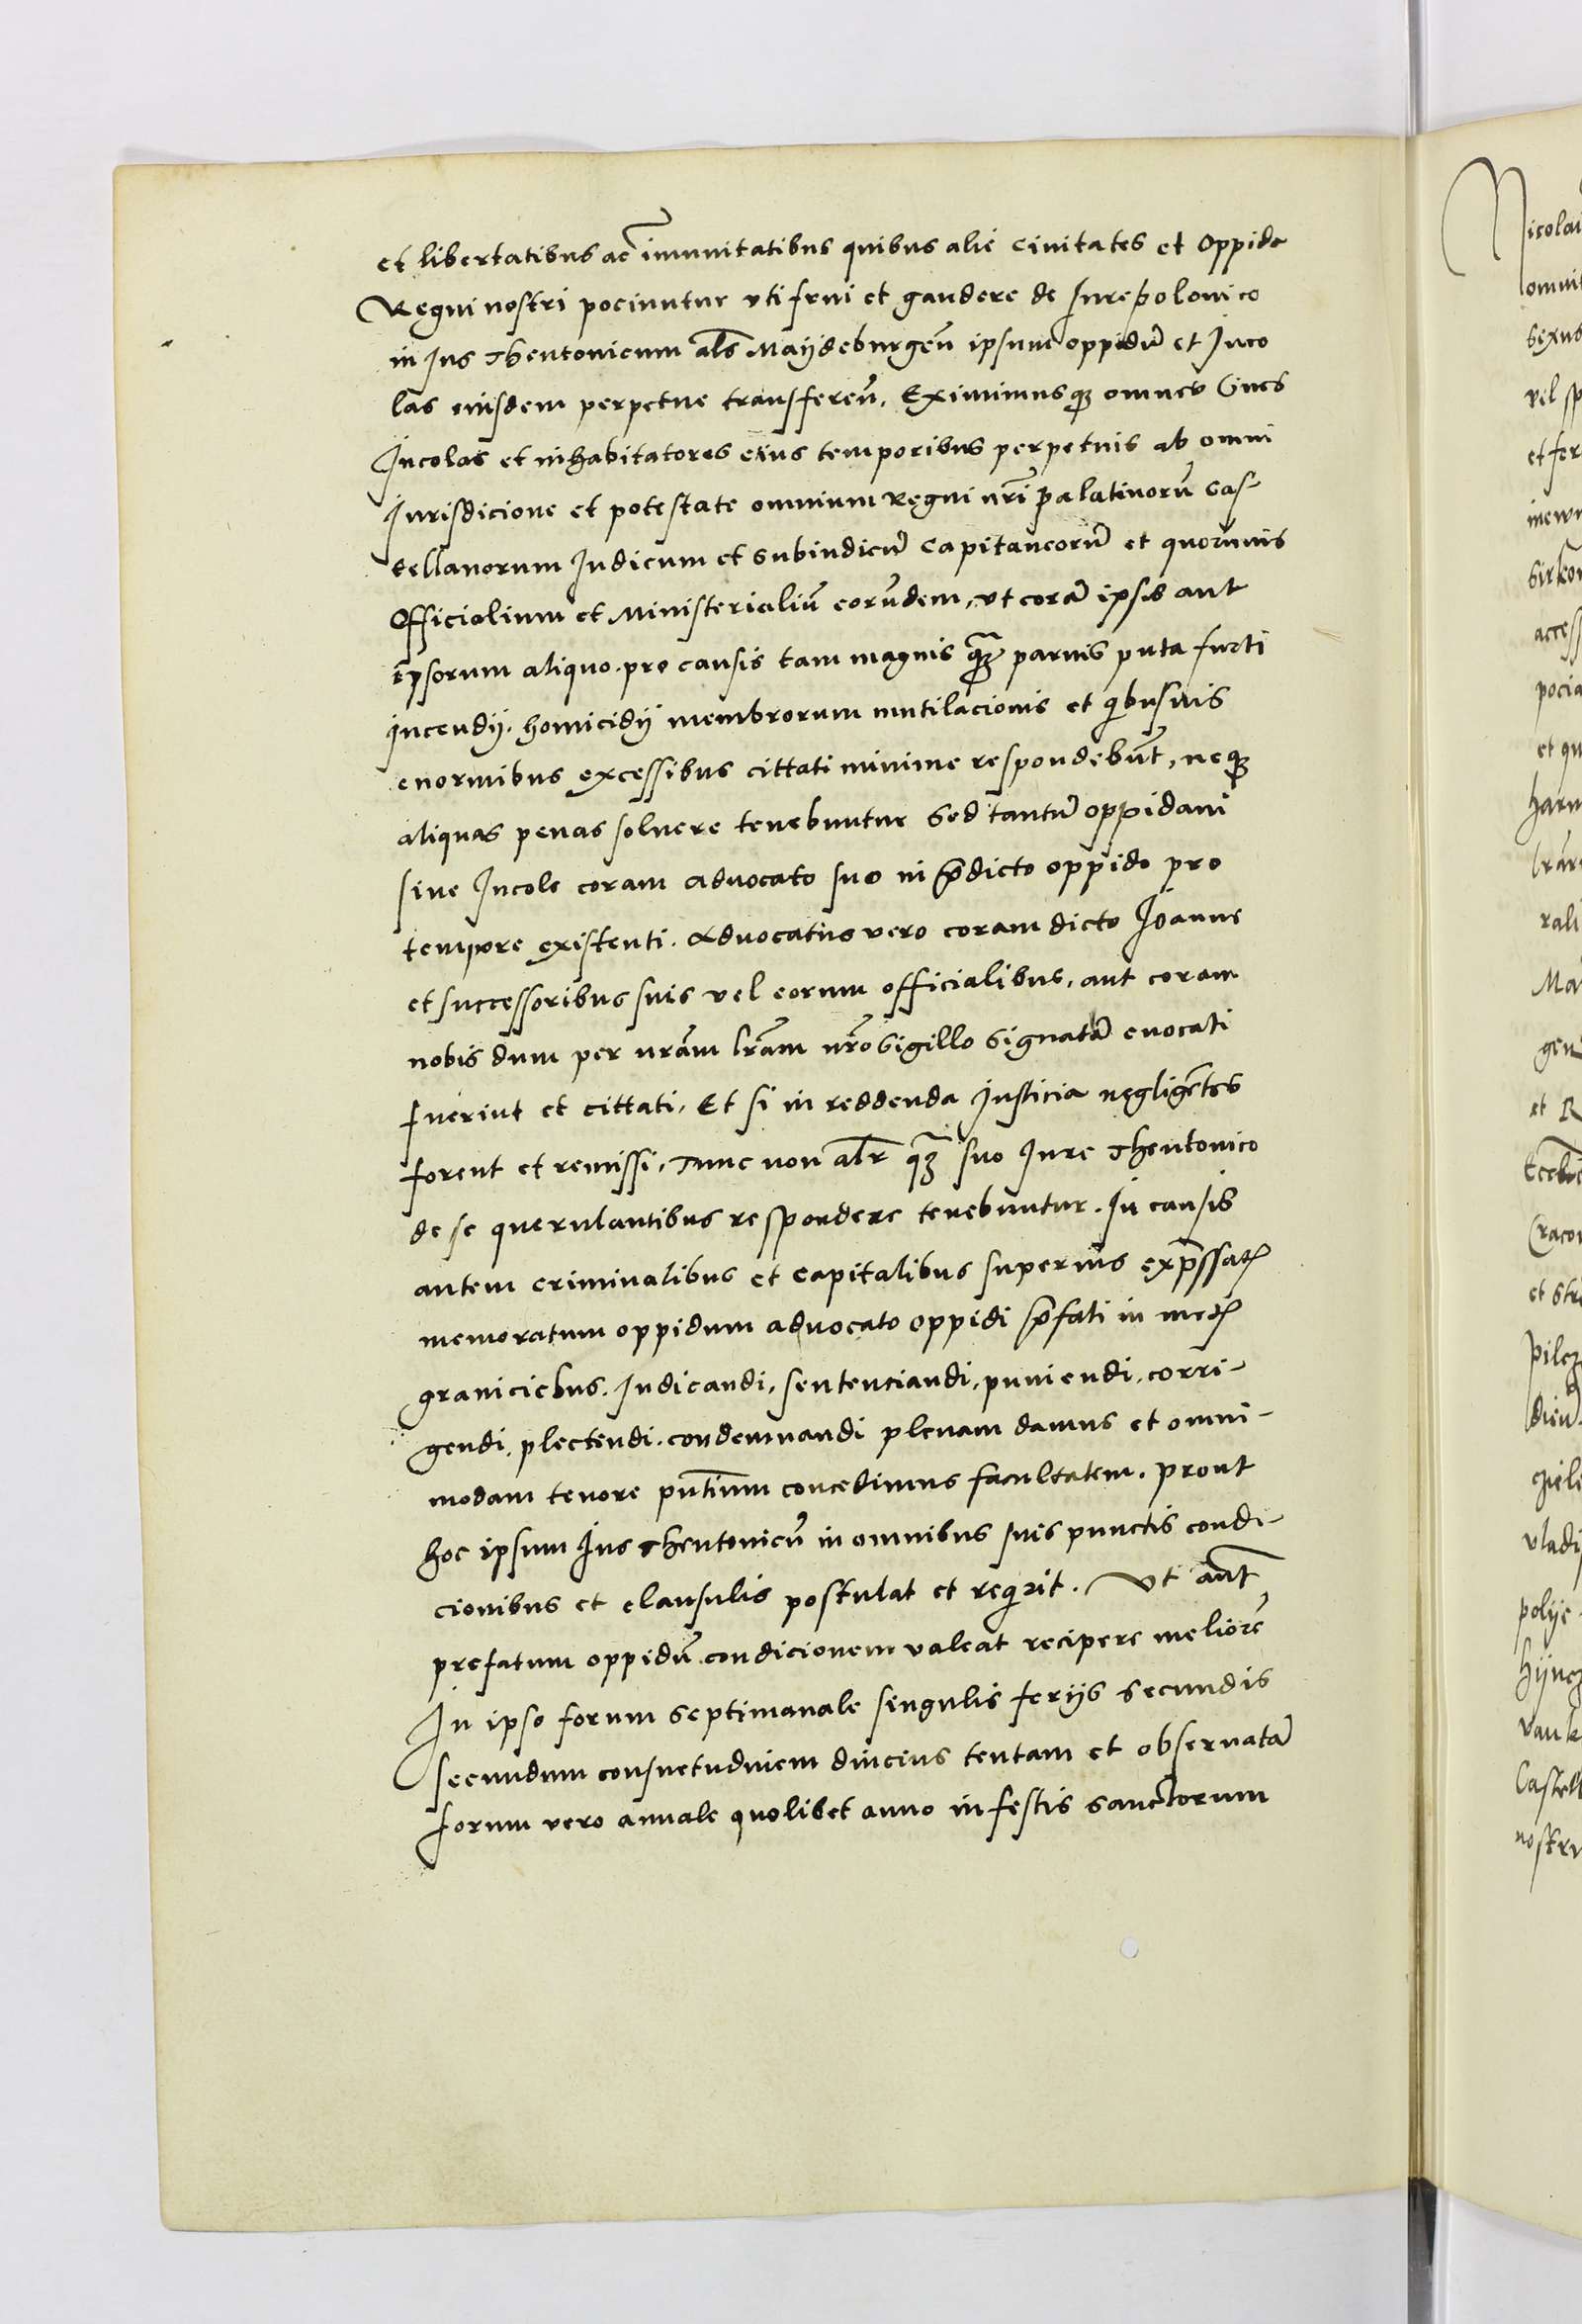 et libertatibus ac imunitatibus quibus alie Civitates et Oppida
Regni nostri pociuntur vti frui et gaudere de Jure polonico
in Jus Theutonicum als Maijdeburgeñ ipsum oppidũ et Inco
las eiusdem perpetue transffereñ. Eximimusqз omnes Ciues
Incolas et inhabitatores eius temporibus perpetuis ab omni
Jurisdicione et potestate omnium Regni nrĩ palatinorũ Cas-
tellanorum Judicum et Subiudicũ Capitaneorũ et quorumuis
Officialium et Ministerialiũ eorũdem, vt corã ipsis aut
ipsorum aliquo. pro causis tam magnis qз̃ paruis puta furti
Incendij. homicidij membrorum mutilacionis et qibusuis
enormibus excessibus cittati minime respondebũt, neqз
aliquas penas soluere tenebuntur Sed tantũ oppidani
siue Incole coram aduocato suo in p̃dicto oppido pro
tempore existenti. Aduocatus vero coram dicto Joanne
et successoribus suis vel eorum officialibus, aut coram
nobis dum per nrãm lrãm nrõ Sigillo Signatã euocati
fuerint et cittati, Et si in reddenda Justicia negligẽtes
forent et remissi, Tunc non alr̃ qз̃ suo Jure Theutonico
de se querulantibus respondere tenebuntur. In causis
autem criminalibus et capitalibus superius exp̃ssatꝭ
memoratum oppidum aduocato oppidi p̃fati in metꝭ
graniciebus. Judicandi, sentenciandi, puniendi. corri-
gendi, plectendi. condemnandi plenam damus et omni-
modam tenore pñtium concedimus facultatem. prout
hoc ipsum Jus Theutonicũ in omnibus suis punctis condi-
cionibus et clausulis postulat et reqirit. Vt aũt
prefatum oppidũ condicionem valeat recipere meliorẽ
In ipso forum septimanale singulis ferijs secundis
secundum consuetudinem diucius tentam et obseruatã
forum vero annale quolibet anno in festis sanctorum